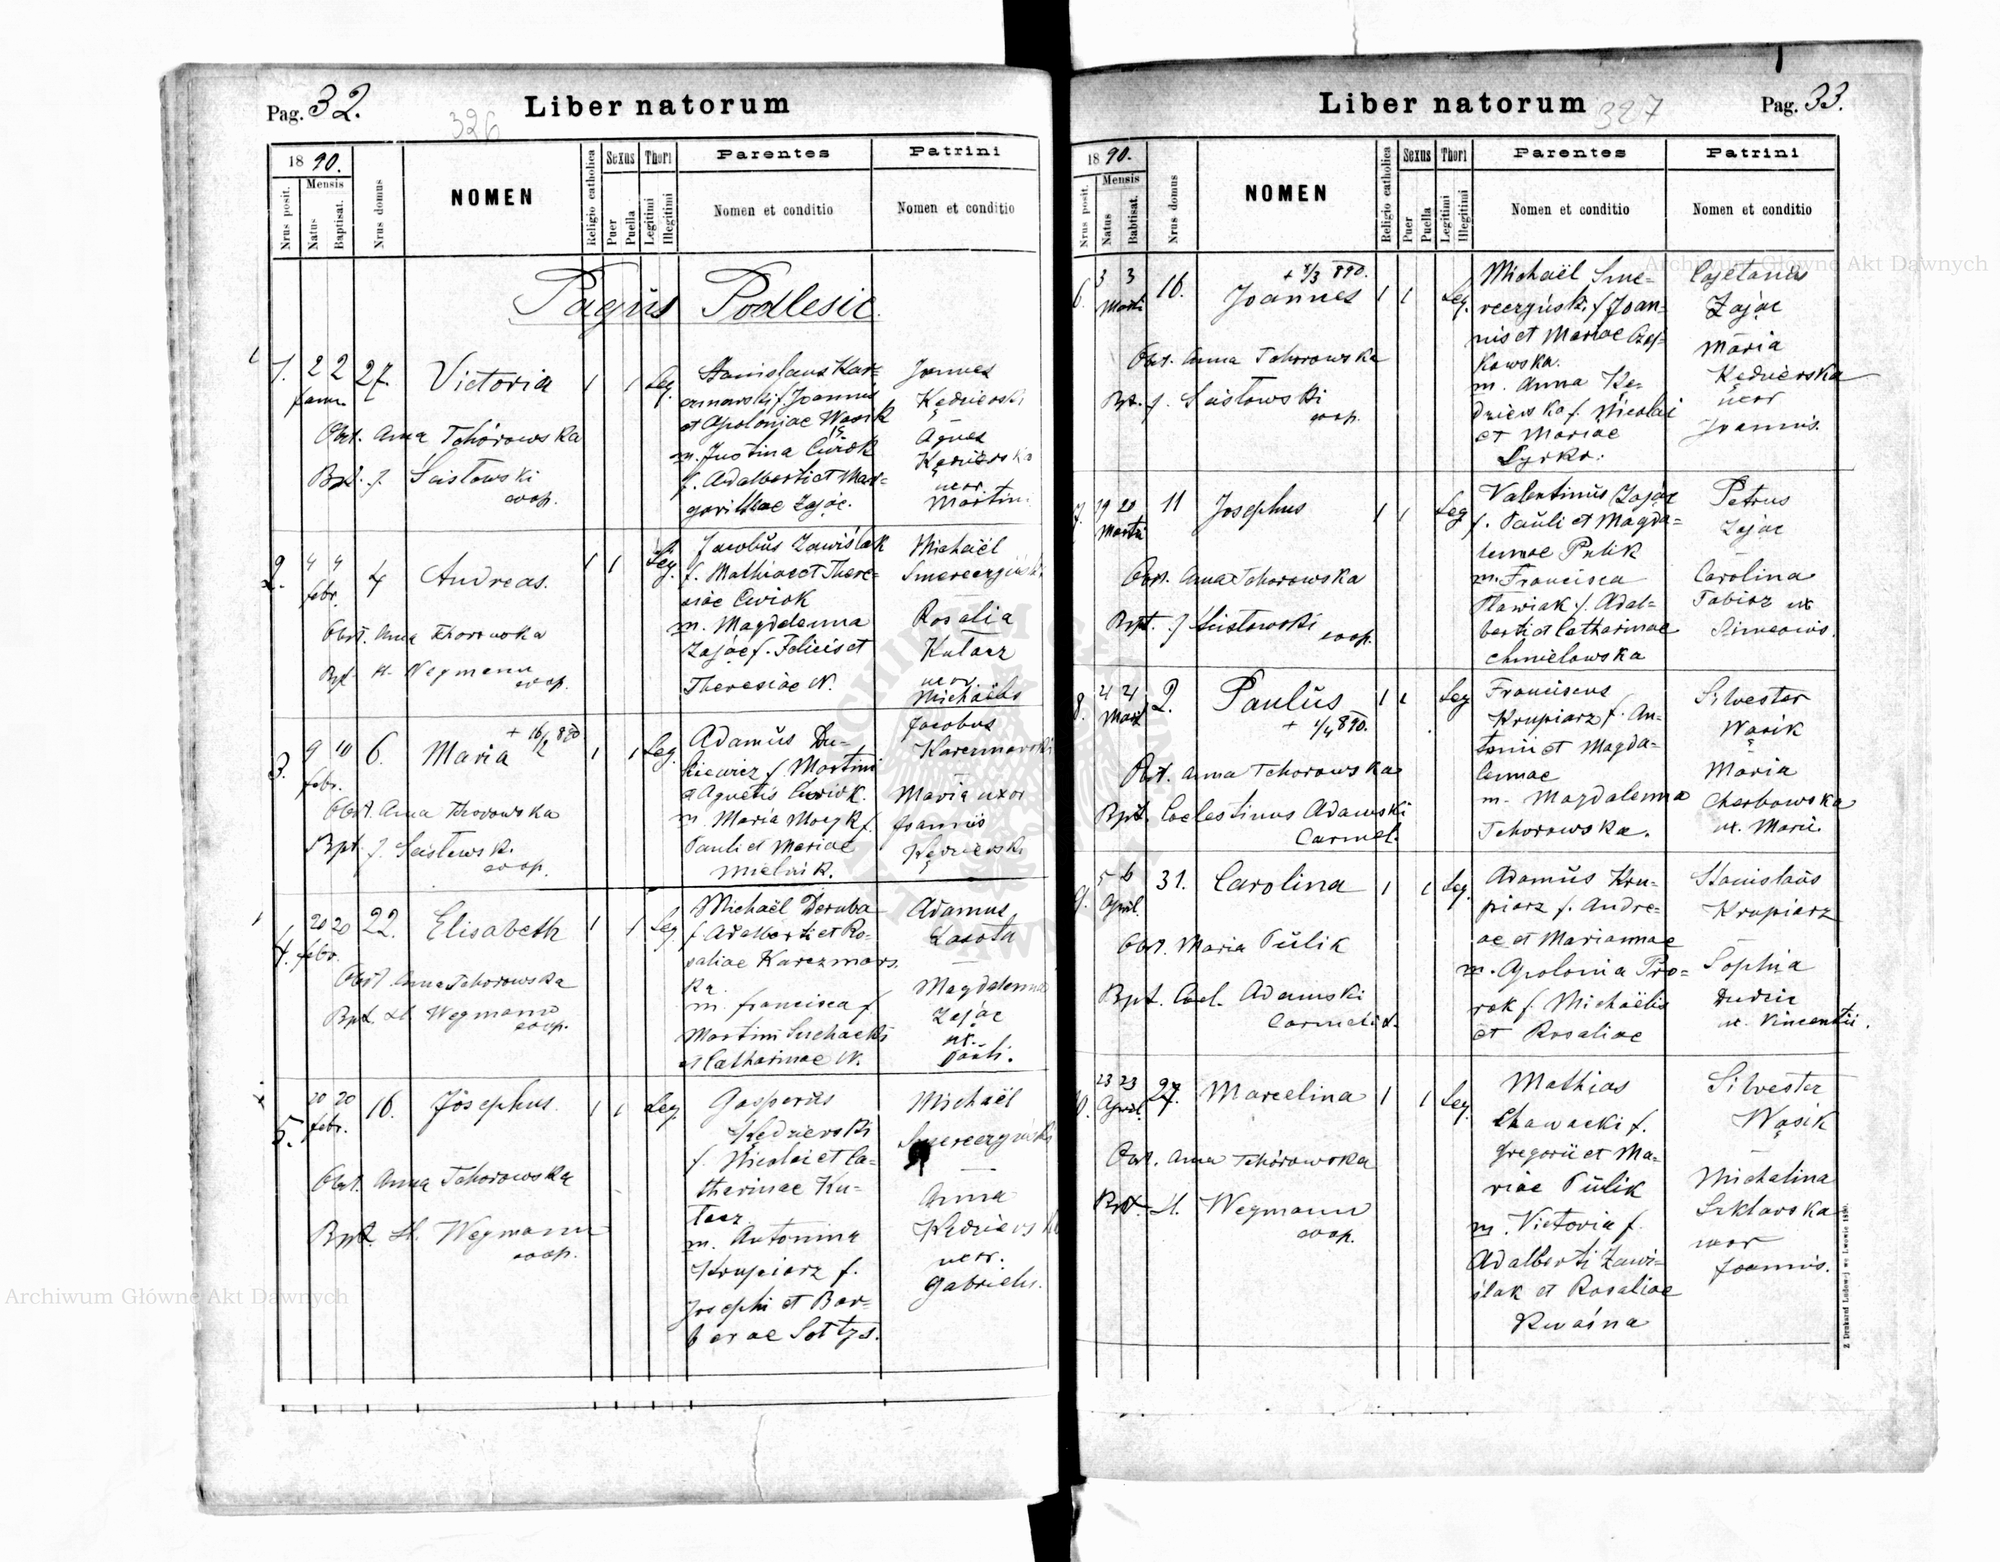 Pag. 32.
326
Liber natorum
18 90.
Nrus posit.
Mensis
Natus
Baptisat.
Nrus domus
NOMEN
Religio catholica
Sexus
Puer
Puella
Thori
Legitimi
Illegitimi
Parentes
Nomen et conditio
Patrini
Nomen et conditio
Pagus Podlesie
1. 2 2 27. Victoria 1 1 Leg.
Janu.
Obst. Anna Tchórowska
Bpt. J.
coop.
Stanislaus Kar-
czmarski f. Joannis
et Apoloniae Wąsik
m. Justina Ćwiok
f. Adalberti et Mar-
garithae Zając.
Joannes
Kędzierski
Agnes
Kędzierska
uxor
Martini
2. 4 4 4 Andreas. 1 1 Leg.
febr.
Obst. Anna Thorowska
Bpt. St. Wegmann
coop.
Jacobus Zawiślak
f. Mathiae et There-
siae Cwiok
m. Magdalenna
Zając f. Felicis et
Theresiae N.
Michaël
Rosalia
Kutacz
uxor
Michaëlis
3. 9 10 6. Maria + 16/2 890 1 1 Leg.
febr.
Obst. Anna Thorowska
Bpt. J.
coop.
Adamus Du-
kiewicz f. Martini
et Agnetis Cwiok.
m. Maria Mocyk f.
Pauli et Mariae
Mielnik.
Jacobus
Karczmarski
Maria uxor
Joannis
Kędzierski
4. 20 20 22. Elisabeth 1 1 Leg
febr.
Obst. Anna Tchorowska
Bpt. St. Wegmann
coop.
Michaël Deruba
f. Adalberti et Ro-
saliae Karczmars
ka.
m. Francisca f.
Martini Suchacki
et Catharinae N.
Adamus
Lasota
Magdalenna
Zając
ux.
Pauli.
5. 20 20 16. Josephus. 1 1 Leg.
febr.
Obst. Anna Tchorowska
Bpt. St. Wegmann
coop.
Gasperus
Kędzierski
f. Nicolai et Ca-
therinae Ku-
tacz
m. Antonina
Krupiarz f.
Josephi et Bar-
barae Sottys.
Michaël
Anna
Kędzierska
uxor.
Gabrielis.
Liber natorum
327
Pag. 33.
18 90.
Nrus posit.
Mensis
Natus
Babtisat.
Nrus domus
NOMEN
Religio catholica
Sexus
Puer
Puella
Thori
Legitimi
Illegitimi
Parentes
Nomen et conditio
Patrini
Nomen et conditio
+ 8/3 890.
6. 3 3 16. Joannes 1 1 Leg.
Marti
Obst. Anna Tchorowska
Bpt. J.
coop.
nis et Mariae Czaj-
kowska.
m. Anna Kę-
dzierska f. Nicolai
et Mariae
Cajetanus
Zając
Maria
Kędzierska
uxor
Joannis.
7. 19 20 11 Josephus 1 1 Leg
Martii
Obst. Anna Tchorowska
Bpt. J
coop.
Valentinus Zając
f. Pauli et Magda-
lennae Pulik
m. Francisca
Pławiak f. Adal-
berti et Catharinae
Chmielowska
Petrus
Zając
Carolina
Tabisz ux
Simeonis.
8. 21 21 2. Paulus 1 1 Leg
Mart
+ 1/4 890.
Obst. Anna Tchorowska
Bpt. Coelestinus Adamski
Carmel.
Franciscus
Krupiarz f. An-
tonii et Magda-
lennae
m. Magdalenna
Tchorowska.
Silvester
Wąsik
Maria
Cherbowska
ux. Marii.
9. 5 6 31. Carolina 1 1 Leg
April.
Obst. Maria Pulik
Bpt. Coel. Adamski
Carmelit.
Adamus Kru-
piarz f. Andre-
ae et Mariannae
m. Apolonia Pro-
rok f. Michaëlis
et Rosaliae
Stanislaus
Krupiarz
Sophia
Dudzic
ux. Vincentii.
10. 23 23 27. Marcelina 1 1 Leg
April.
Obst. Anna Tchórowska
Bpt. St. Wegmann
coop.
Mathias
Chawacki f.
Gregorii et Ma-
riae Pulik
m. Victoria f.
Adalberti Zawi-
ślak et Rosaliae
Kwaśna
Silvester
Wąsik
Michalina
Szklarska
uxor
Joannis.
Z Drukarni Ludowej we Lwowie 1889.
Archiwum Główne Akt Dawnych
Archiwum Główne Akt Dawnych